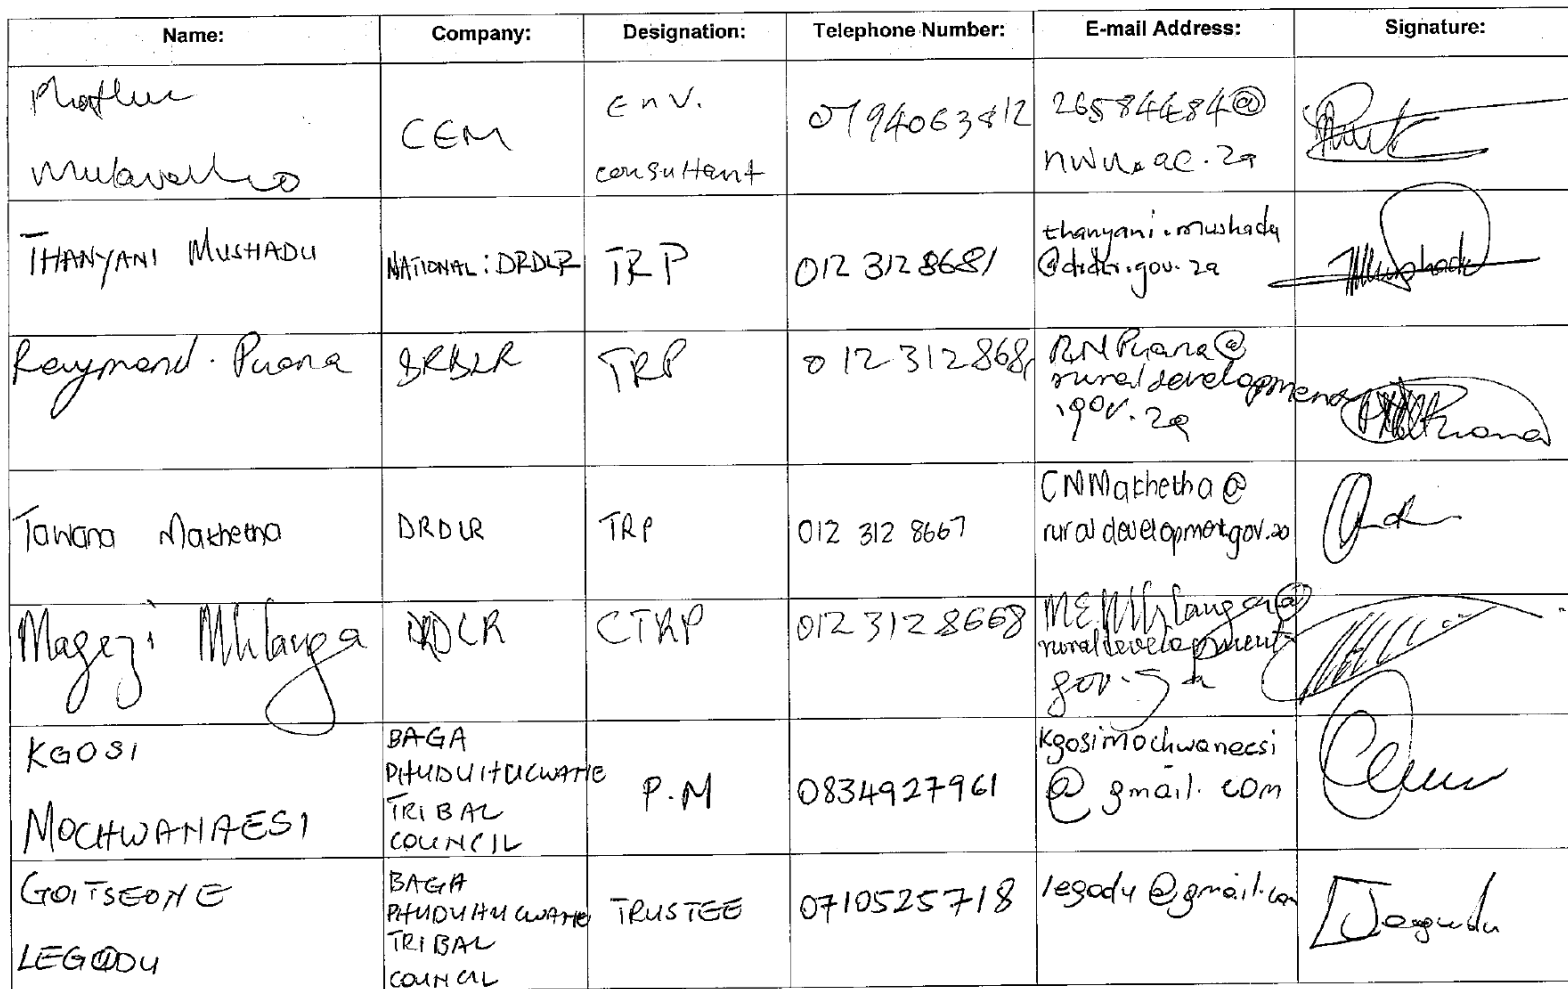 Name: Company: Designation: Telephone Number: E-mail Address: Signature:
CEM
Env.
consultant
0794063812
26584484@
nwu.ac.za
THANYANI MUSHADU
NATIONAL: DRDLR
TRP
012 312 8681
thanyani.mushadu
@drdlr.gov.za
Raymond. Puana
DRDLR
TRP
012 312 868
RNPuana@
ruraldevelopment
.gov.za
Tawana Makhetha
DRDLR
TRP
012 312 8667
CNMakhetha@
ruraldevelopment.gov.za
Magezi Mhlanga
DRDLR
CTRP
012 312 8668
MEMhlanga@
ruraldevelopment
gov.za
KGOSI
MOCHWANAESI
BAGA
PHUDUHUCWANE
TRIBAL
COUNCIL
P.M
0834927961
kgosimochwanaesi
@gmail.com
GOITSEONE
LEGODU
BAGA
PHUDUHUCWANE
TRIBAL
COUNCIL
TRUSTEE
0710525718
legodu@gmail.com